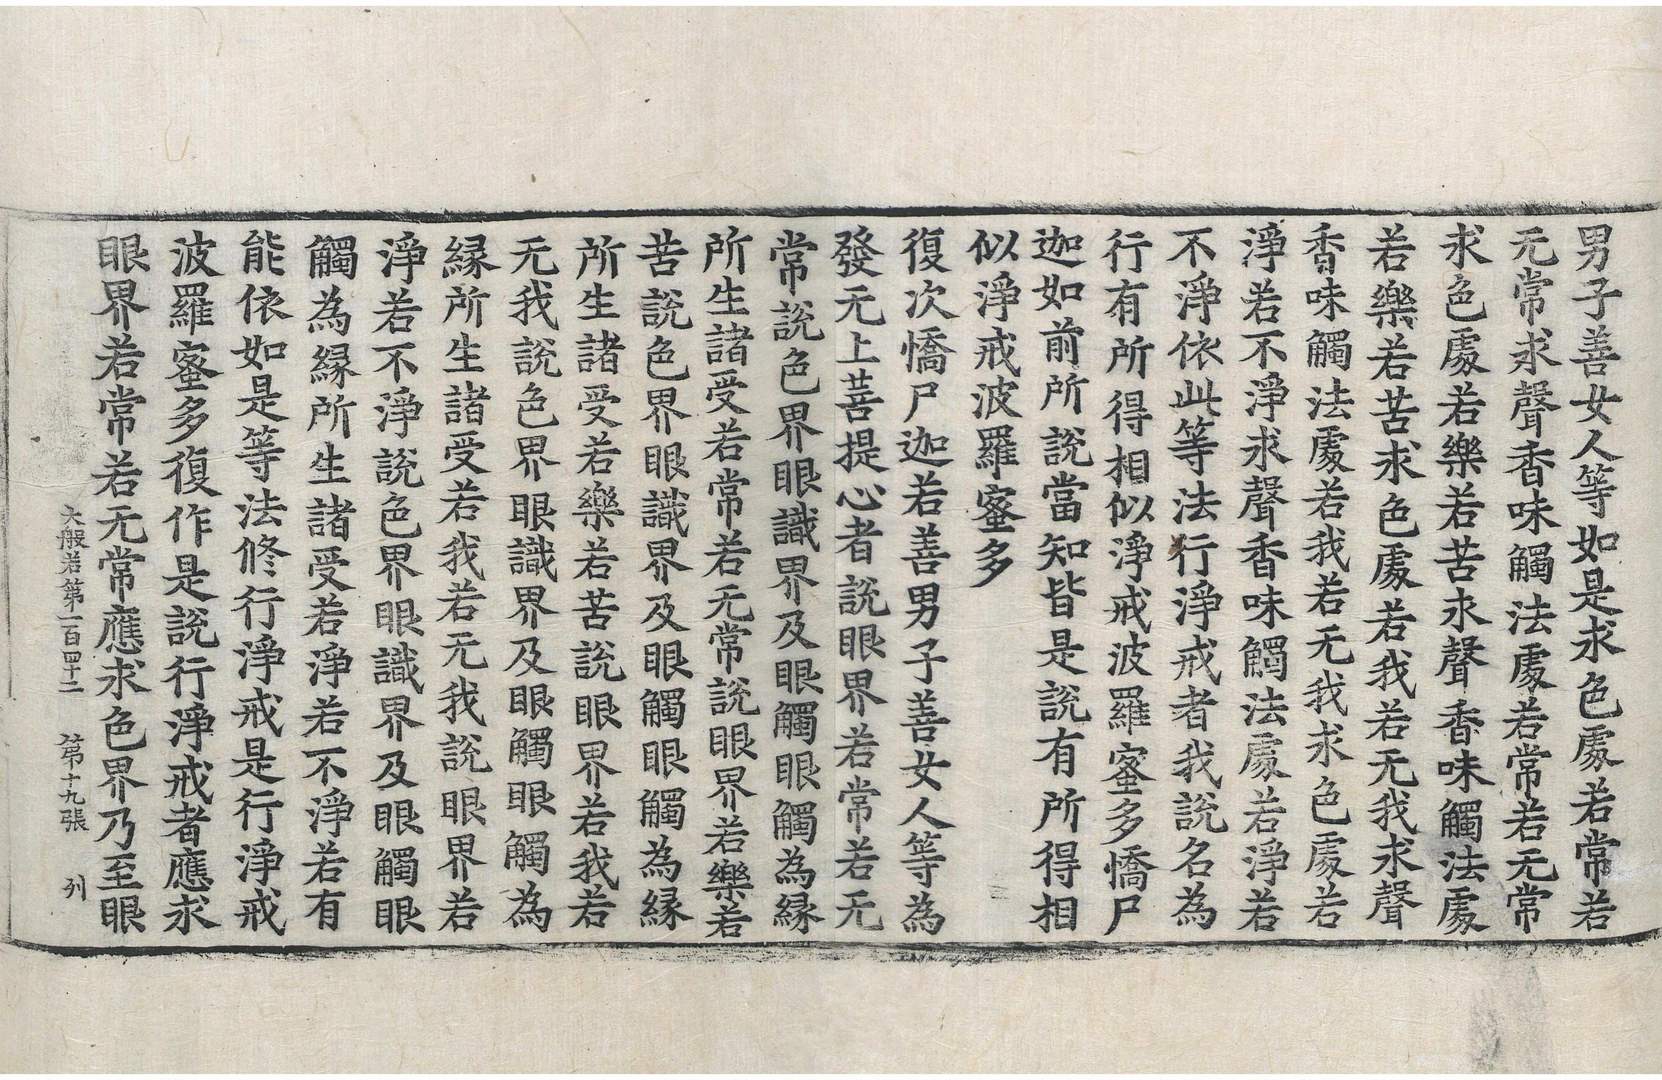 男子善女人等如是求色處若常若
无常求聲香味觸法處若常若无常
求色處若樂若苦求聲香味觸法處
若樂若苦求色處若我若无我求聲
香味觸法處若我若无我求色處若
淨若不淨求聲香味觸法處若淨若
不淨依此等法行淨戒者我說名為
行有所得相似淨戒波羅蜜多憍尸
迦如前所說當知皆是說有所得相
似淨戒波羅蜜多
復次憍尸迦若善男子善女人等為
發无上菩提心者說眼界若常若无
常說色界眼識界及眼觸眼觸為緣
所生諸受若常若无常說眼界若樂若
苦說色界眼識界及眼觸眼觸為緣
所生諸受若樂若苦說眼界若我若
无我說色界眼識界及眼觸眼觸為
緣所生諸受若我若无我說眼界若
淨若不淨說色界眼識界及眼觸眼
觸為緣所生諸受若淨若不淨若有
能依如是等法修行淨戒是行淨戒
波羅蜜多復作是說行淨戒者應求
眼界若常若无常應求色界乃至眼
大般若第一百四十二 第十九張 列